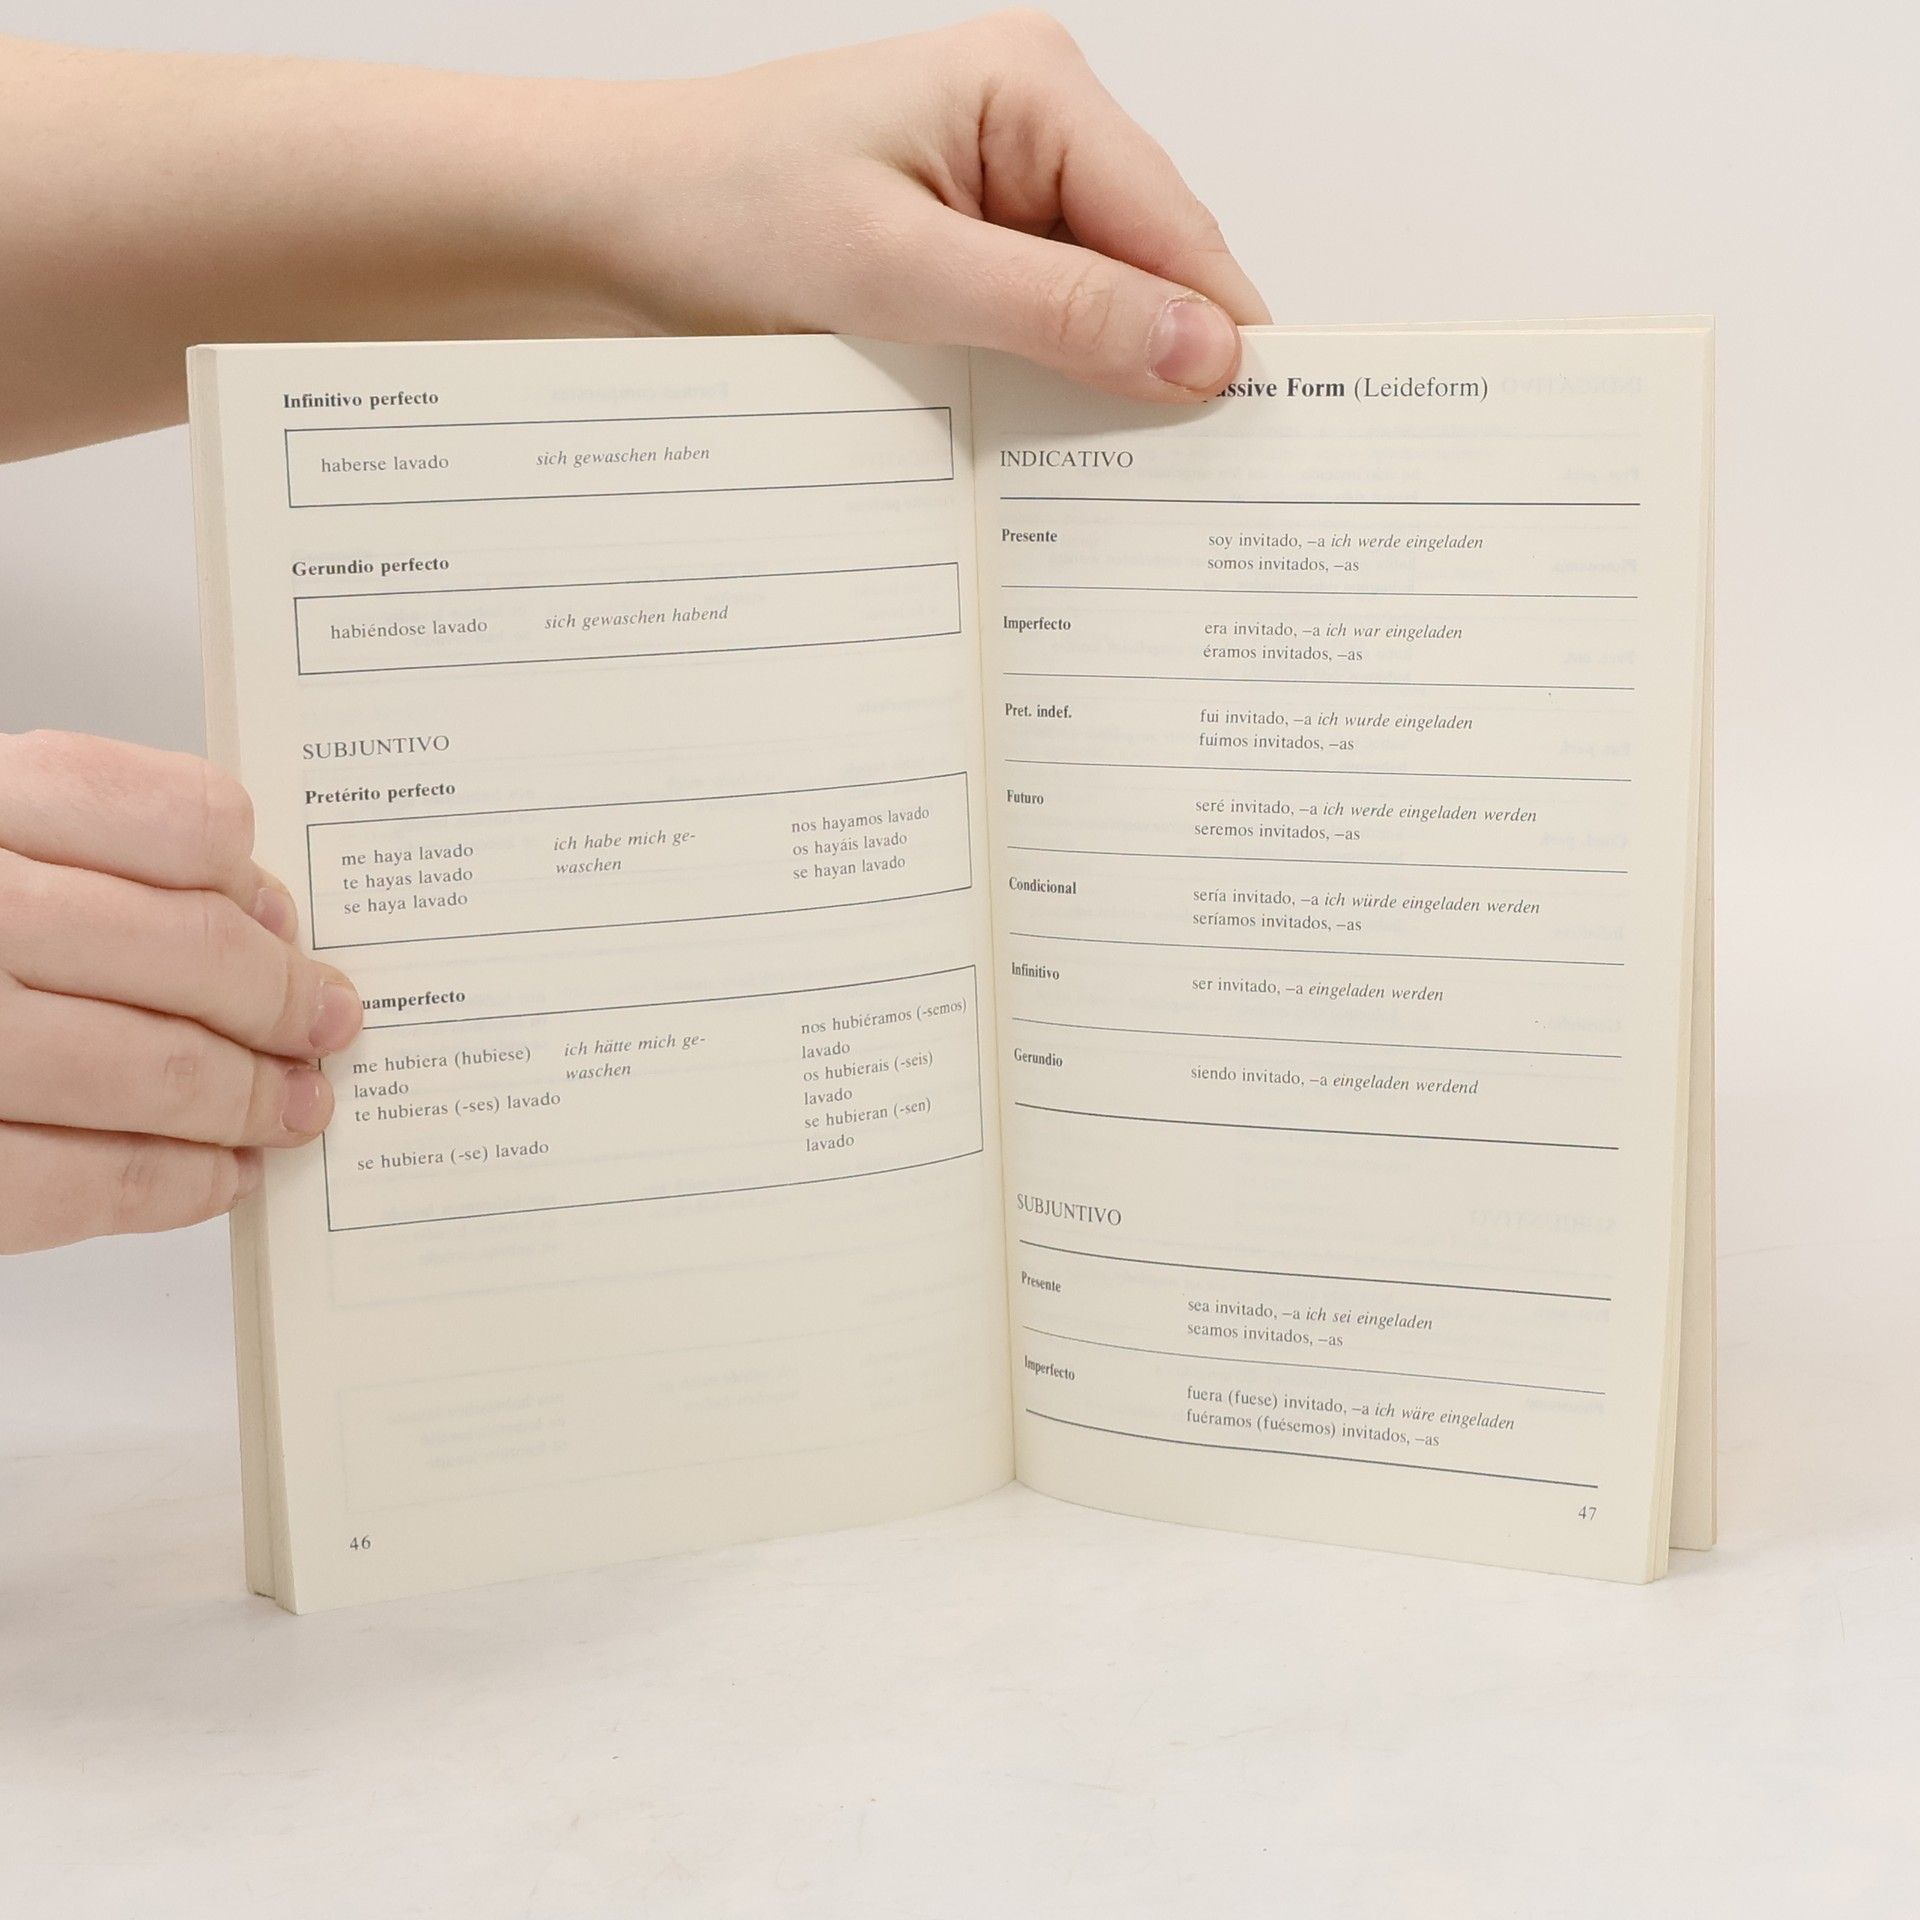 Infinitivo perfecto
haberse lavado sich gewaschen haben
Gerundio perfecto
habiéndose lavado sich gewaschen habend
SUBJUNTIVO
Pretérito perfecto
me haya lavado ich habe mich ge- nos hayamos lavado
te hayas lavado waschen os hayáis lavado
se haya lavado se hayan lavado
uamperfecto
me hubiera (hubiese) ich hätte mich ge- nos hubiéramos (-semos)
lavado waschen lavado
te hubieras (-ses) lavado os hubierais (-seis)
lavado
se hubiera (-se) lavado se hubieran (-sen)
lavado
46
assive Form (Leideform)
INDICATIVO
Presente soy invitado, –a ich werde eingeladen
somos invitados, –as
Imperfecto era invitado, –a ich war eingeladen
éramos invitados, –as
Pret. indef. fui invitado, –a ich wurde eingeladen
fuimos invitados, –as
Futuro seré invitado, –a ich werde eingeladen werden
seremos invitados, –as
Condicional sería invitado, –a ich würde eingeladen werden
seríamos invitados, –as
Infinitivo ser invitado, –a eingeladen werden
Gerundio siendo invitado, –a eingeladen werdend
SUBJUNTIVO
Presente sea invitado, –a ich sei eingeladen
seamos invitados, –as
Imperfecto fuera (fuese) invitado, –a ich wäre eingeladen
fuéramos (fuésemos) invitados, –as
47